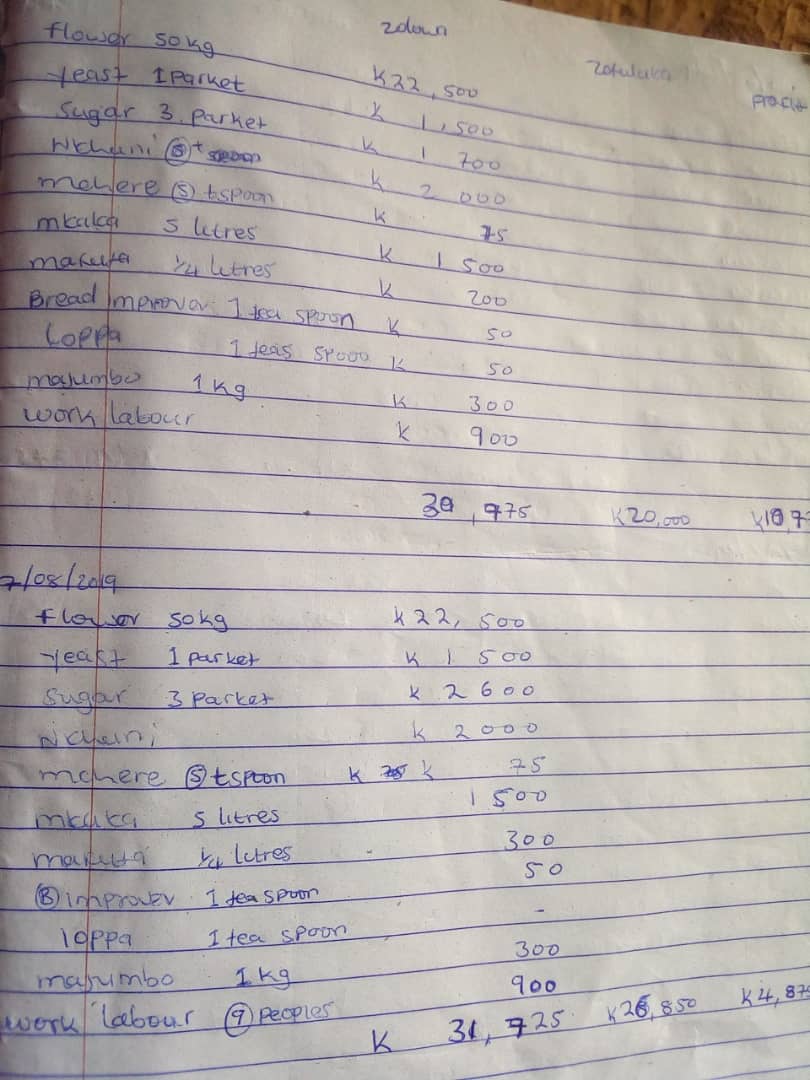 zdown Zotuluka profit
flower 50kg K22,500
Yeast 1 Parket K 1,500
Sugar 3 Parket K 1 700
Nkhuni ⑤ tspoon K 2 000
mchere ⑤ tspoon K 75
mkaka 5 litres K 1 500
mafuta 1/4 litres K 200
Bread Improver 1 tea spoon K 50
Loppa 1 teas spoon K 50
majumbo 1 Kg K 300
work labour K 900
30,975 K20,000 K10,97
7/08/2019
flower 50kg K22, 500
Yeast 1 parket K 1 500
Sugar 3 Parket K 2 600
Nkhuni K 2 000
mchere ⑤ tspoon K 75 K 75
mkaka 5 litres 1 500
mafuta 1/4 litres 300
Ⓑ improver 1 tea spoon 50
loppa 1 tea spoon -
majumbo 1 kg 300
work labour ⑨ peoples 900
K 31,725 K26,850 K4,875